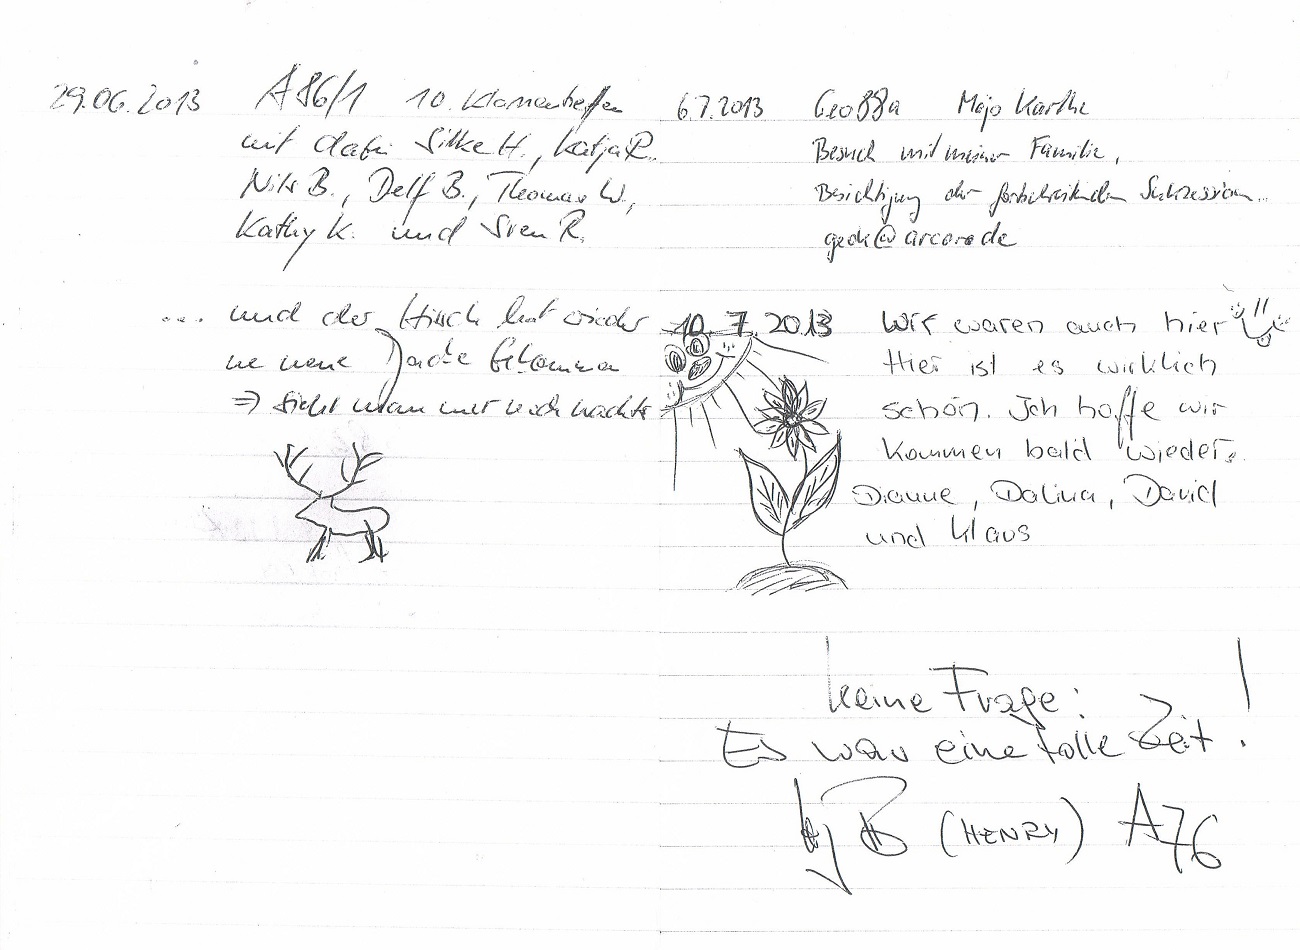 29.06.2013 A86/1 10. Klassentreffen
mit dabei Silke H., Katja R.
Nils B., Delf B., Thomas W.,
Kathy K. und Sven R.
... und der Hirsch hat wieder
ne neue Jacke bekommen
⇒ sieht man nur noch nachts
6.7.2013 Majo Karthe
Besuch mit meiner Familie,
Besichtigung der fortschreitenden Sukzession...
10.7.2013 Wir waren auch hier
Hier ist es wirklich
schön. Ich hoffe wir
kommen bald wieder.
Dianne, Dalina, David
und Klaus
keine Frage:
Es war eine tolle Zeit!
(HENRY) A76